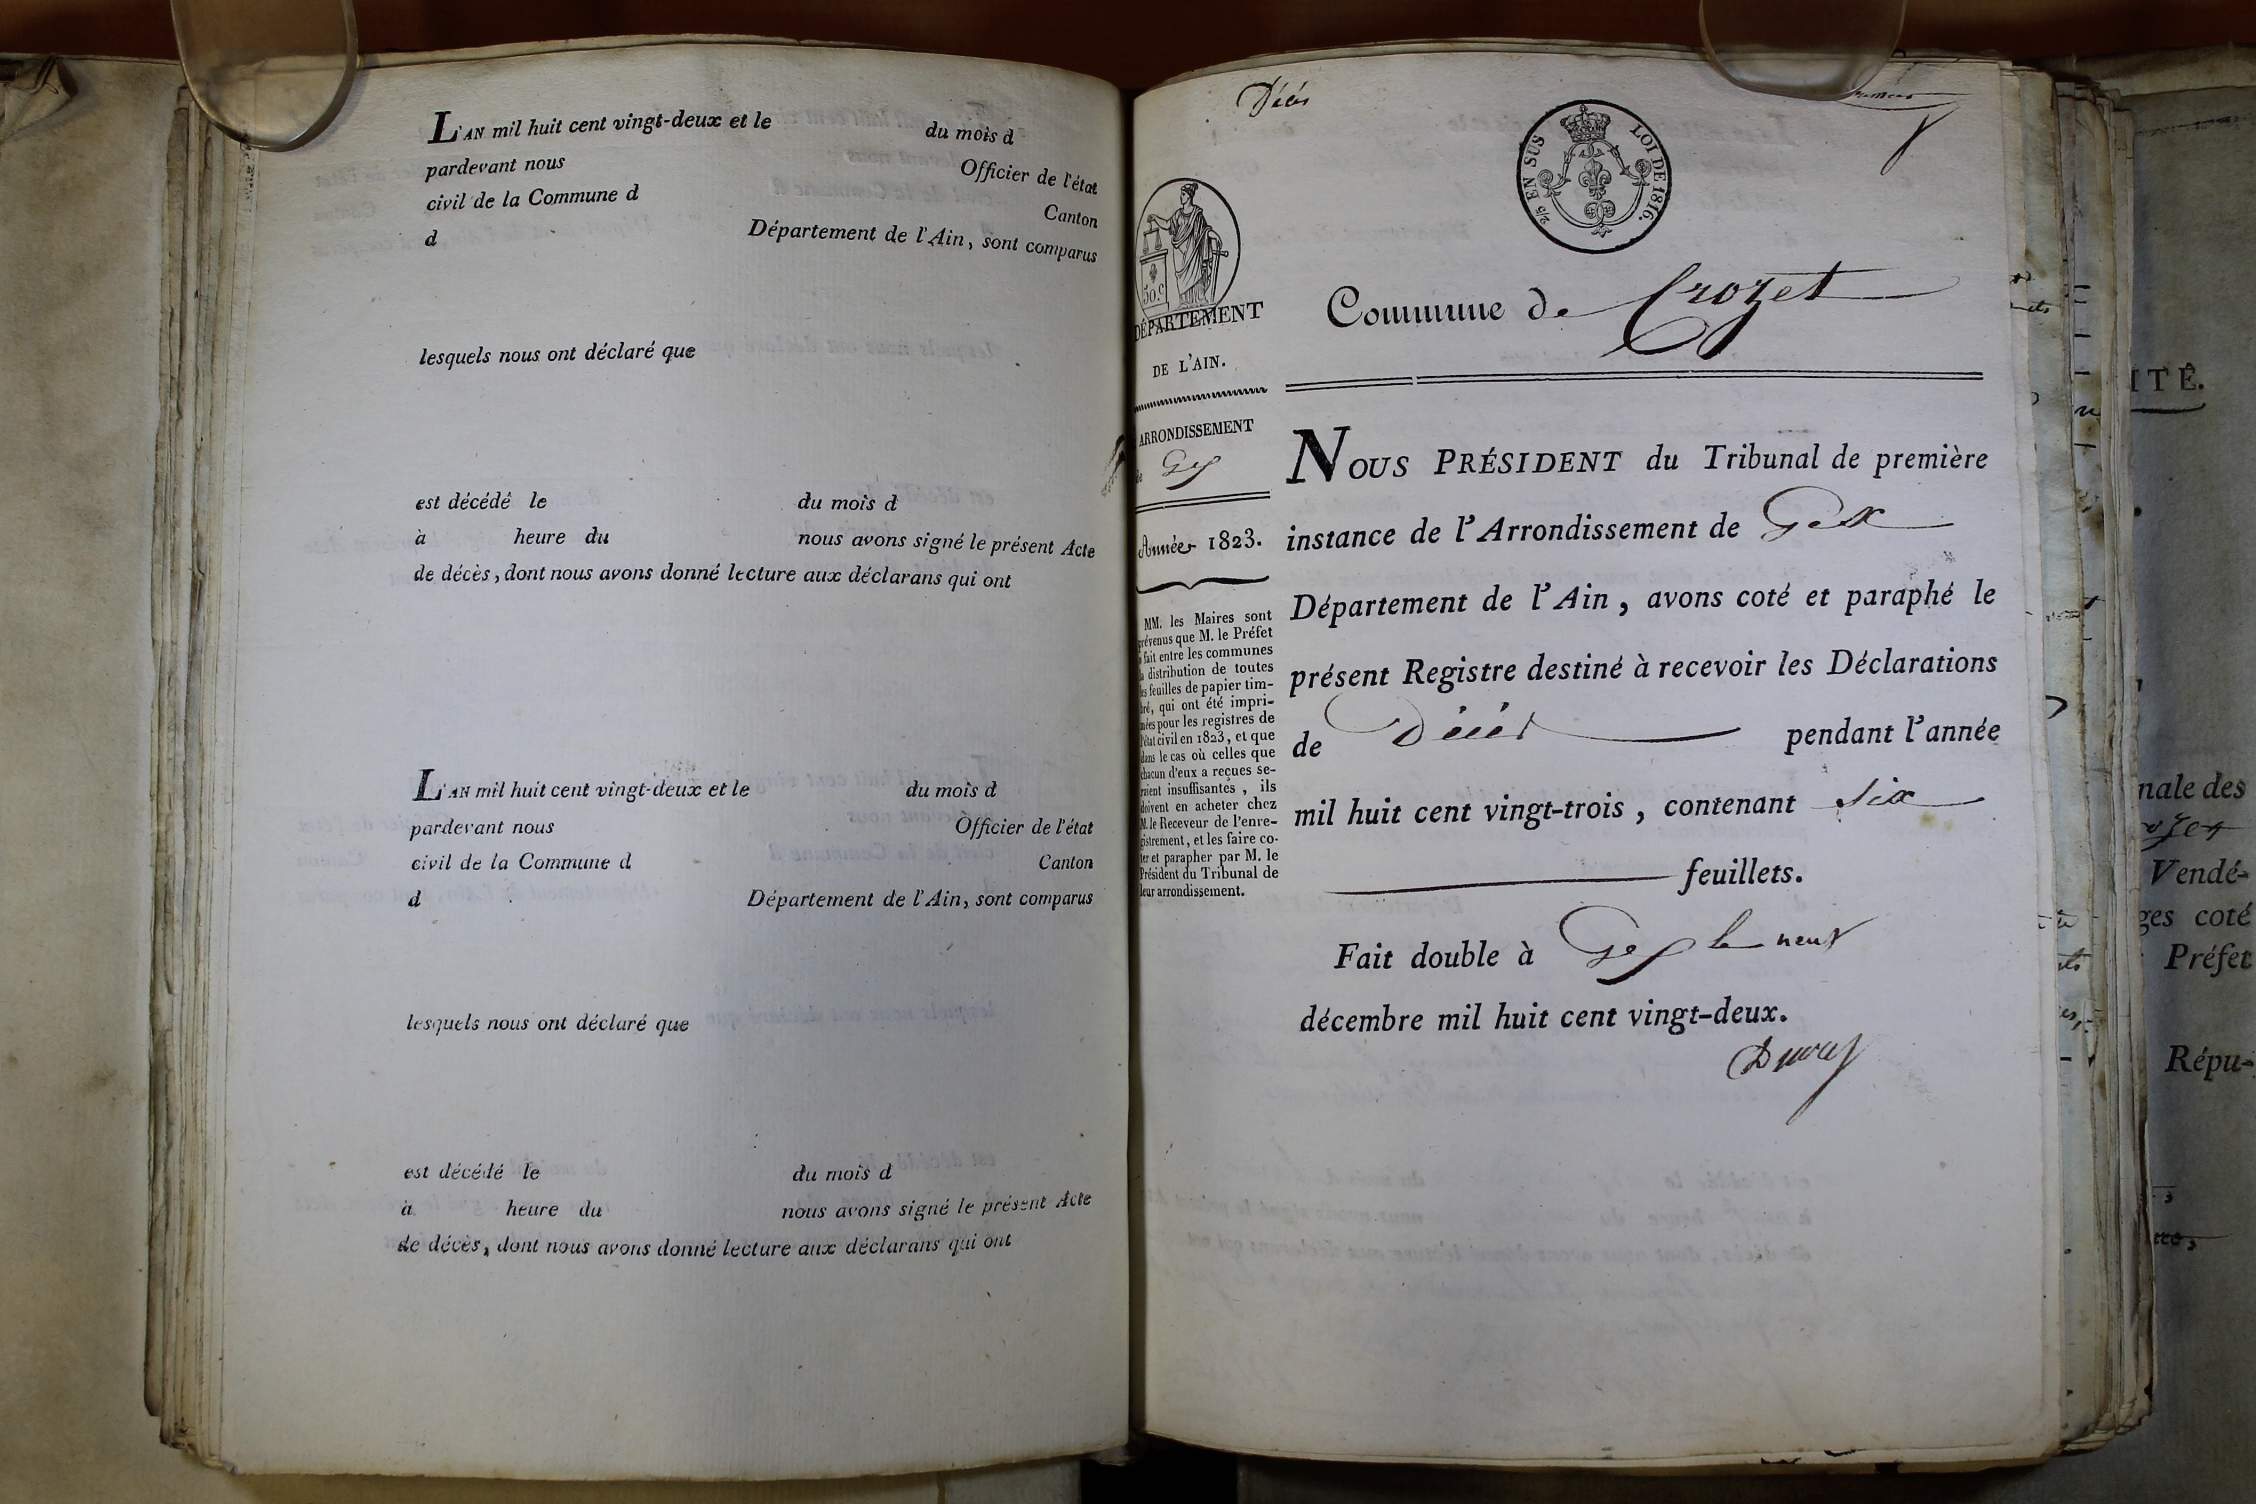 L'AN mil huit cent vingt-deux et le du mois d
pardevant nous Officier de l'état
civil de la Commune d Canton
d Département de l'Ain, sont comparus
lesquels nous ont déclaré que
est décédé le du mois d
à heure du nous avons signé le présent Acte
de décès, dont nous avons donné lecture aux déclarans qui ont
L'AN mil huit cent vingt-deux et le du mois d
pardevant nous Officier de l'état
civil de la Commune d Canton
d Département de l'Ain, sont comparus
lesquels nous ont déclaré que
est décédé le du mois d
à heure du nous avons signé le présent Acte
de décès, dont nous avons donné lecture aux déclarans qui ont
Décès
2/5 EN SUS LOI DE 1816.
50.c
DÉPARTEMENT
DE L'AIN.
ARRONDISSEMENT
de Gex
Année 1823.
MM. les Maires sont
prévenus que M. le Préfet
a fait entre les communes
la distribution de toutes
les feuilles de papier tim-
bré, qui ont été impri-
mées pour les registres de
l'état civil en 1823, et que
dans le cas où celles que
chacun d'eux a reçues se-
raient insuffisantes, ils
doivent en acheter chez
M. le Receveur de l'enre-
gistrement, et les faire co-
ter et parapher par M. le
Président du Tribunal de
leur arrondissement.
Commune de Crozet
NOUS PRÉSIDENT du Tribunal de première
instance de l'Arrondissement de Gex
Département de l'Ain, avons coté et paraphé le
présent Registre destiné à recevoir les Déclarations
de Décès pendant l'année
mil huit cent vingt-trois, contenant six
feuillets.
Fait double à Gex le neuf
décembre mil huit cent vingt-deux.
ITÉ.
nale des
Vendé-
ges coté
Préfet
Répu-